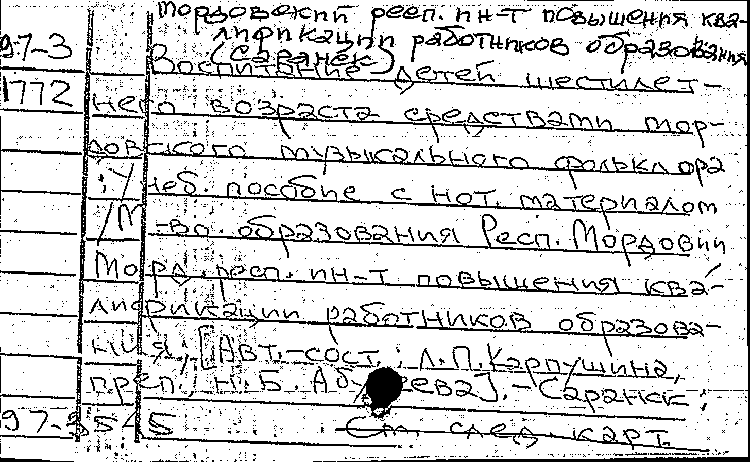 Мордовский респ. ин-т повышения ква-
лификации работников образования
97-3 (Саранск)
Воспитание детей шестилет-
1772 него возраста средствами мор-
довского музыкального фольклора
: Учеб. пособие с нот. материалом
/М-во образования Респ. Мордовии
Морд. респ. ин-т повышения ква-
лификации работников образова-
ния; [Авт.-сост.: Л.П.Карпушина,
преп., Н.Б. ]. - Саранск:
97-3545 См. след. карт.